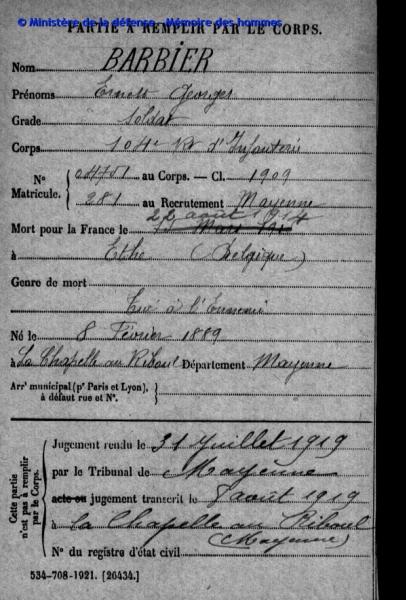 © Ministère de la défense - Mémoire des hommes
PARTIE À REMPLIR PAR LE CORPS.
Nom BARBIER
Prénoms Ernest Georges
Grade Soldat
Corps 104e Rt d'Infanterie
N° Matricule. { 04751 au Corps. — Cl. 1909
281 au Recrutement Mayenne
22 août 1914
Mort pour la France le
à Ethe (Belgique)
Genre de mort
Tué à l'Ennemi
Né le 8 Février 1889
à La Chapelle au Riboul Département Mayenne
Arrt municipal (pr Paris et Lyon), à défaut rue et N°. }
Cette partie n'est pas à remplir par le Corps.
Jugement rendu le 31 Juillet 1919
par le Tribunal de Mayenne
acte ou jugement transcrit le 8 août 1919
à La Chapelle au Riboul
(Mayenne)
N° du registre d'état civil
534-708-1921. [26434.]